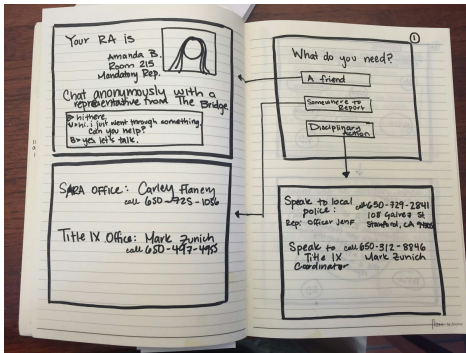 Your RA is
Amanda B.
Room 215
Mandatory Rep.
Chat anonymously with a
representative from The Bridge.
B> hi there.
U> hi. i just went through something.
Can you help?
B> yes let's talk.
SARA Office: Carley Flanery
call 650-725-1056
Title IX Office: Mark Zunich
call 650-497-4955
1
What do you need?
A friend
Somewhere to
Report
Disciplinary
Action
Speak to local call 650-729-2841
police: 108 Galvez St
Rep: Officer Jenf Stanford, CA 94305
Speak to call 650-312-8846
Title IX Mark Zunich
Coordinator